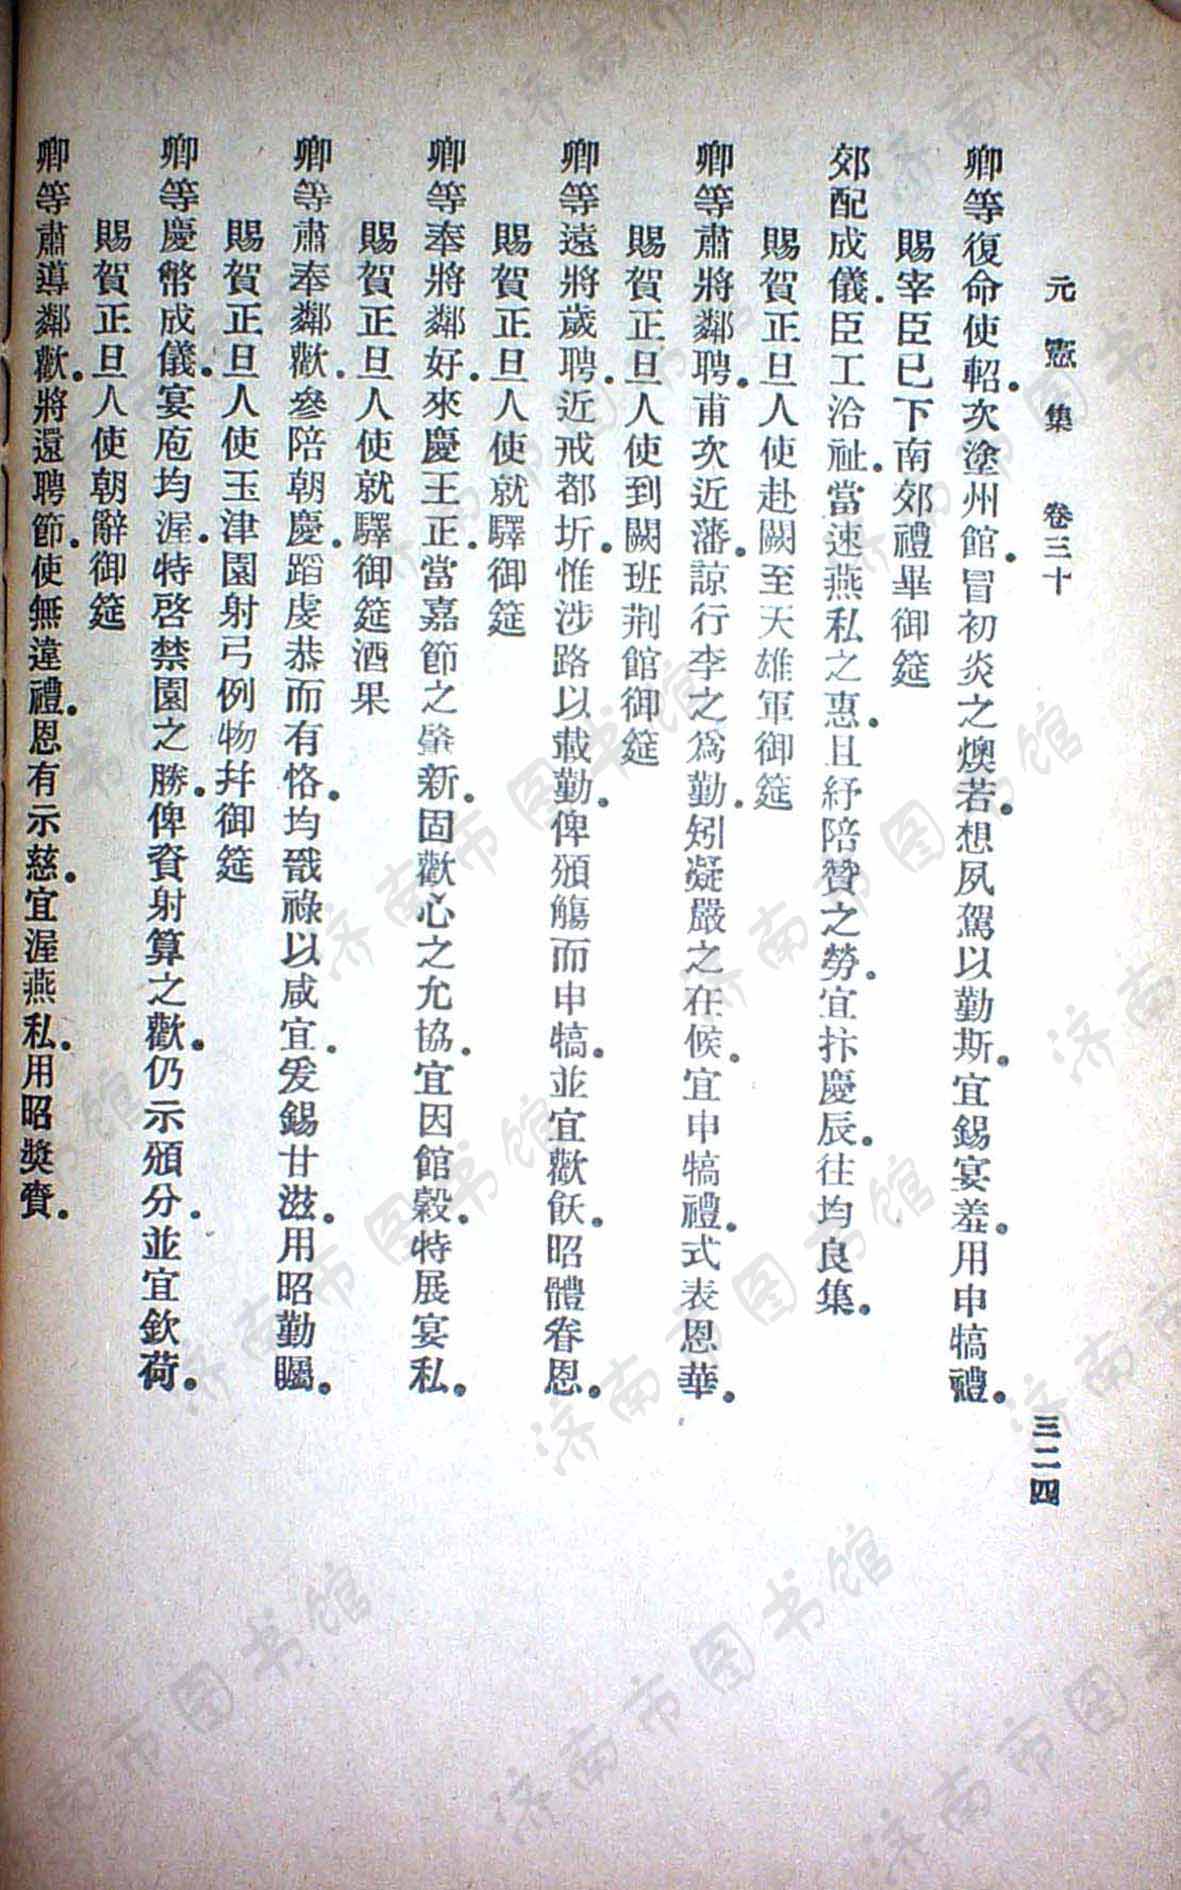 元憲集 卷三十 三二四
卿等復命使軺。次塗州館。冒初炎之燠若。想夙駕以勤斯。宜錫宴羞。用申犒禮。
賜宰臣已下南郊禮畢御筵
郊配成儀。臣工洽祉。當速燕私之惠。且紓陪贊之勞。宜抃慶辰。往均良集。
賜賀正旦人使赴闕至天雄軍御筵
卿等肅將鄰聘。甫次近藩。諒行李之爲勤。矧凝嚴之在候。宜申犒禮。式表恩華。
賜賀正旦人使到闕班荆館御筵
卿等遠將歲聘。近戒都圻。惟涉路以載勤。俾頒觴而申犒。並宜歡飫。昭體眷恩。
賜賀正旦人使就驛御筵
卿等奉將鄰好。來慶王正。當嘉節之肇新。固歡心之允協。宜因館穀。特展宴私。
賜賀正旦人使就驛御筵酒果
卿等肅奉鄰歡。參陪朝慶。蹈虔恭而有恪。均戩祿以咸宜。爰錫甘滋。用昭勤矚。
賜賀正旦人使玉津園射弓例物幷御筵
卿等慶幣成儀。宴庖均渥。特啓禁園之勝。俾資射算之歡。仍示頒分。並宜欽荷。
賜賀正旦人使朝辭御筵
卿等肅導鄰歡。將還聘節。使無違禮。恩有示慈。宜渥燕私。用昭獎賚。
济南市图书馆